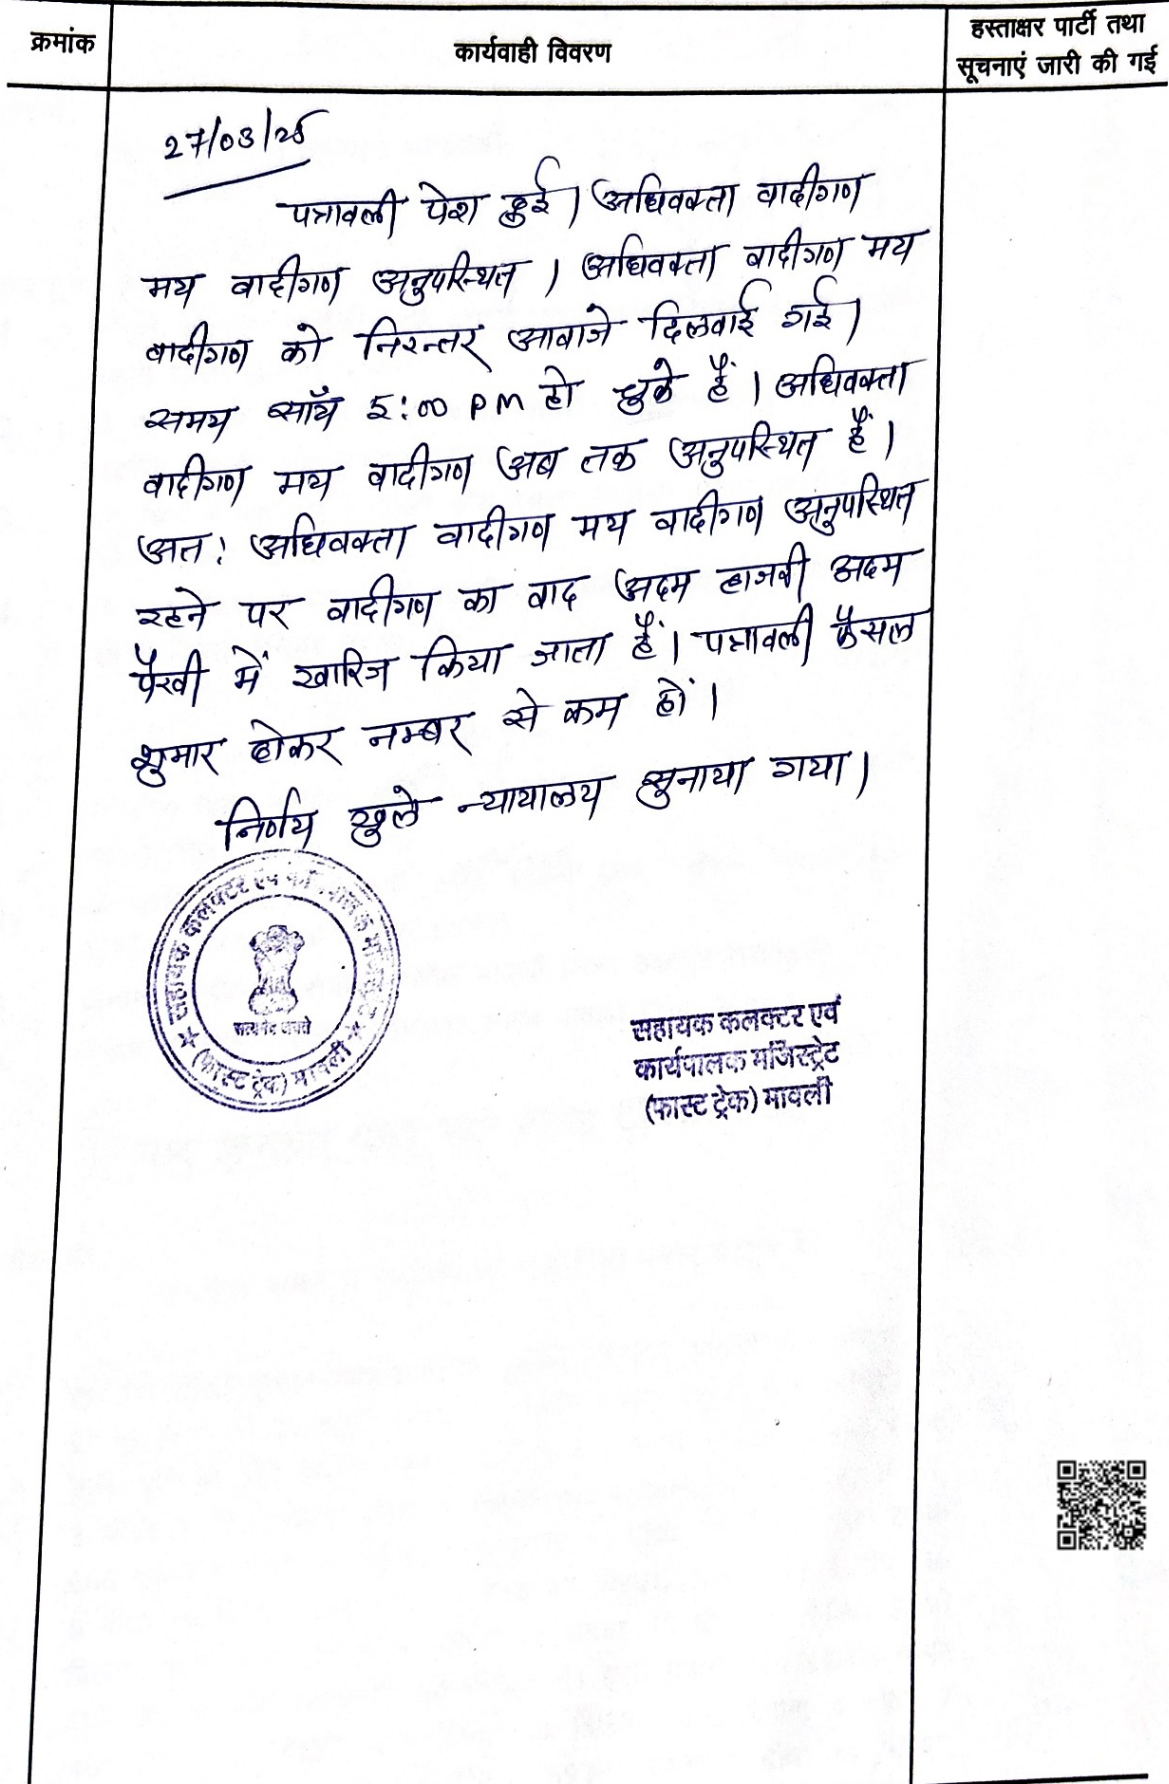 क्रमांक
कार्यवाही विवरण
हस्ताक्षर पार्टी तथा
सूचनाएं जारी की गई
27/03/25
पत्रावली पेश हुई। अधिवक्ता वादीगण
मय वादीगण अनुपस्थित। अधिवक्ता वादीगण मय
वादीगण को निरन्तर आवाजे दिलवाई गई।
समय साँय 5:00 PM हो चुके हैं। अधिवक्ता
वादीगण मय वादीगण अब तक अनुपस्थित हैं।
अत: अधिवक्ता वादीगण मय वादीगण अनुपस्थित
रहने पर वादीगण का वाद अदम हाजरी अदम
पैरवी में खारिज किया जाता हैं। पत्रावली फैसल
शुमार होकर नम्बर से कम हों।
निर्णय खुले न्यायालय सुनाया गया।
सहायक कलक्टर एवं
सत्यमेव जयते
(फास्ट ट्रेक) मावली
सहायक कलक्टर एवं
कार्यपालक मजिस्ट्रेट
(फास्ट ट्रेक) मावली